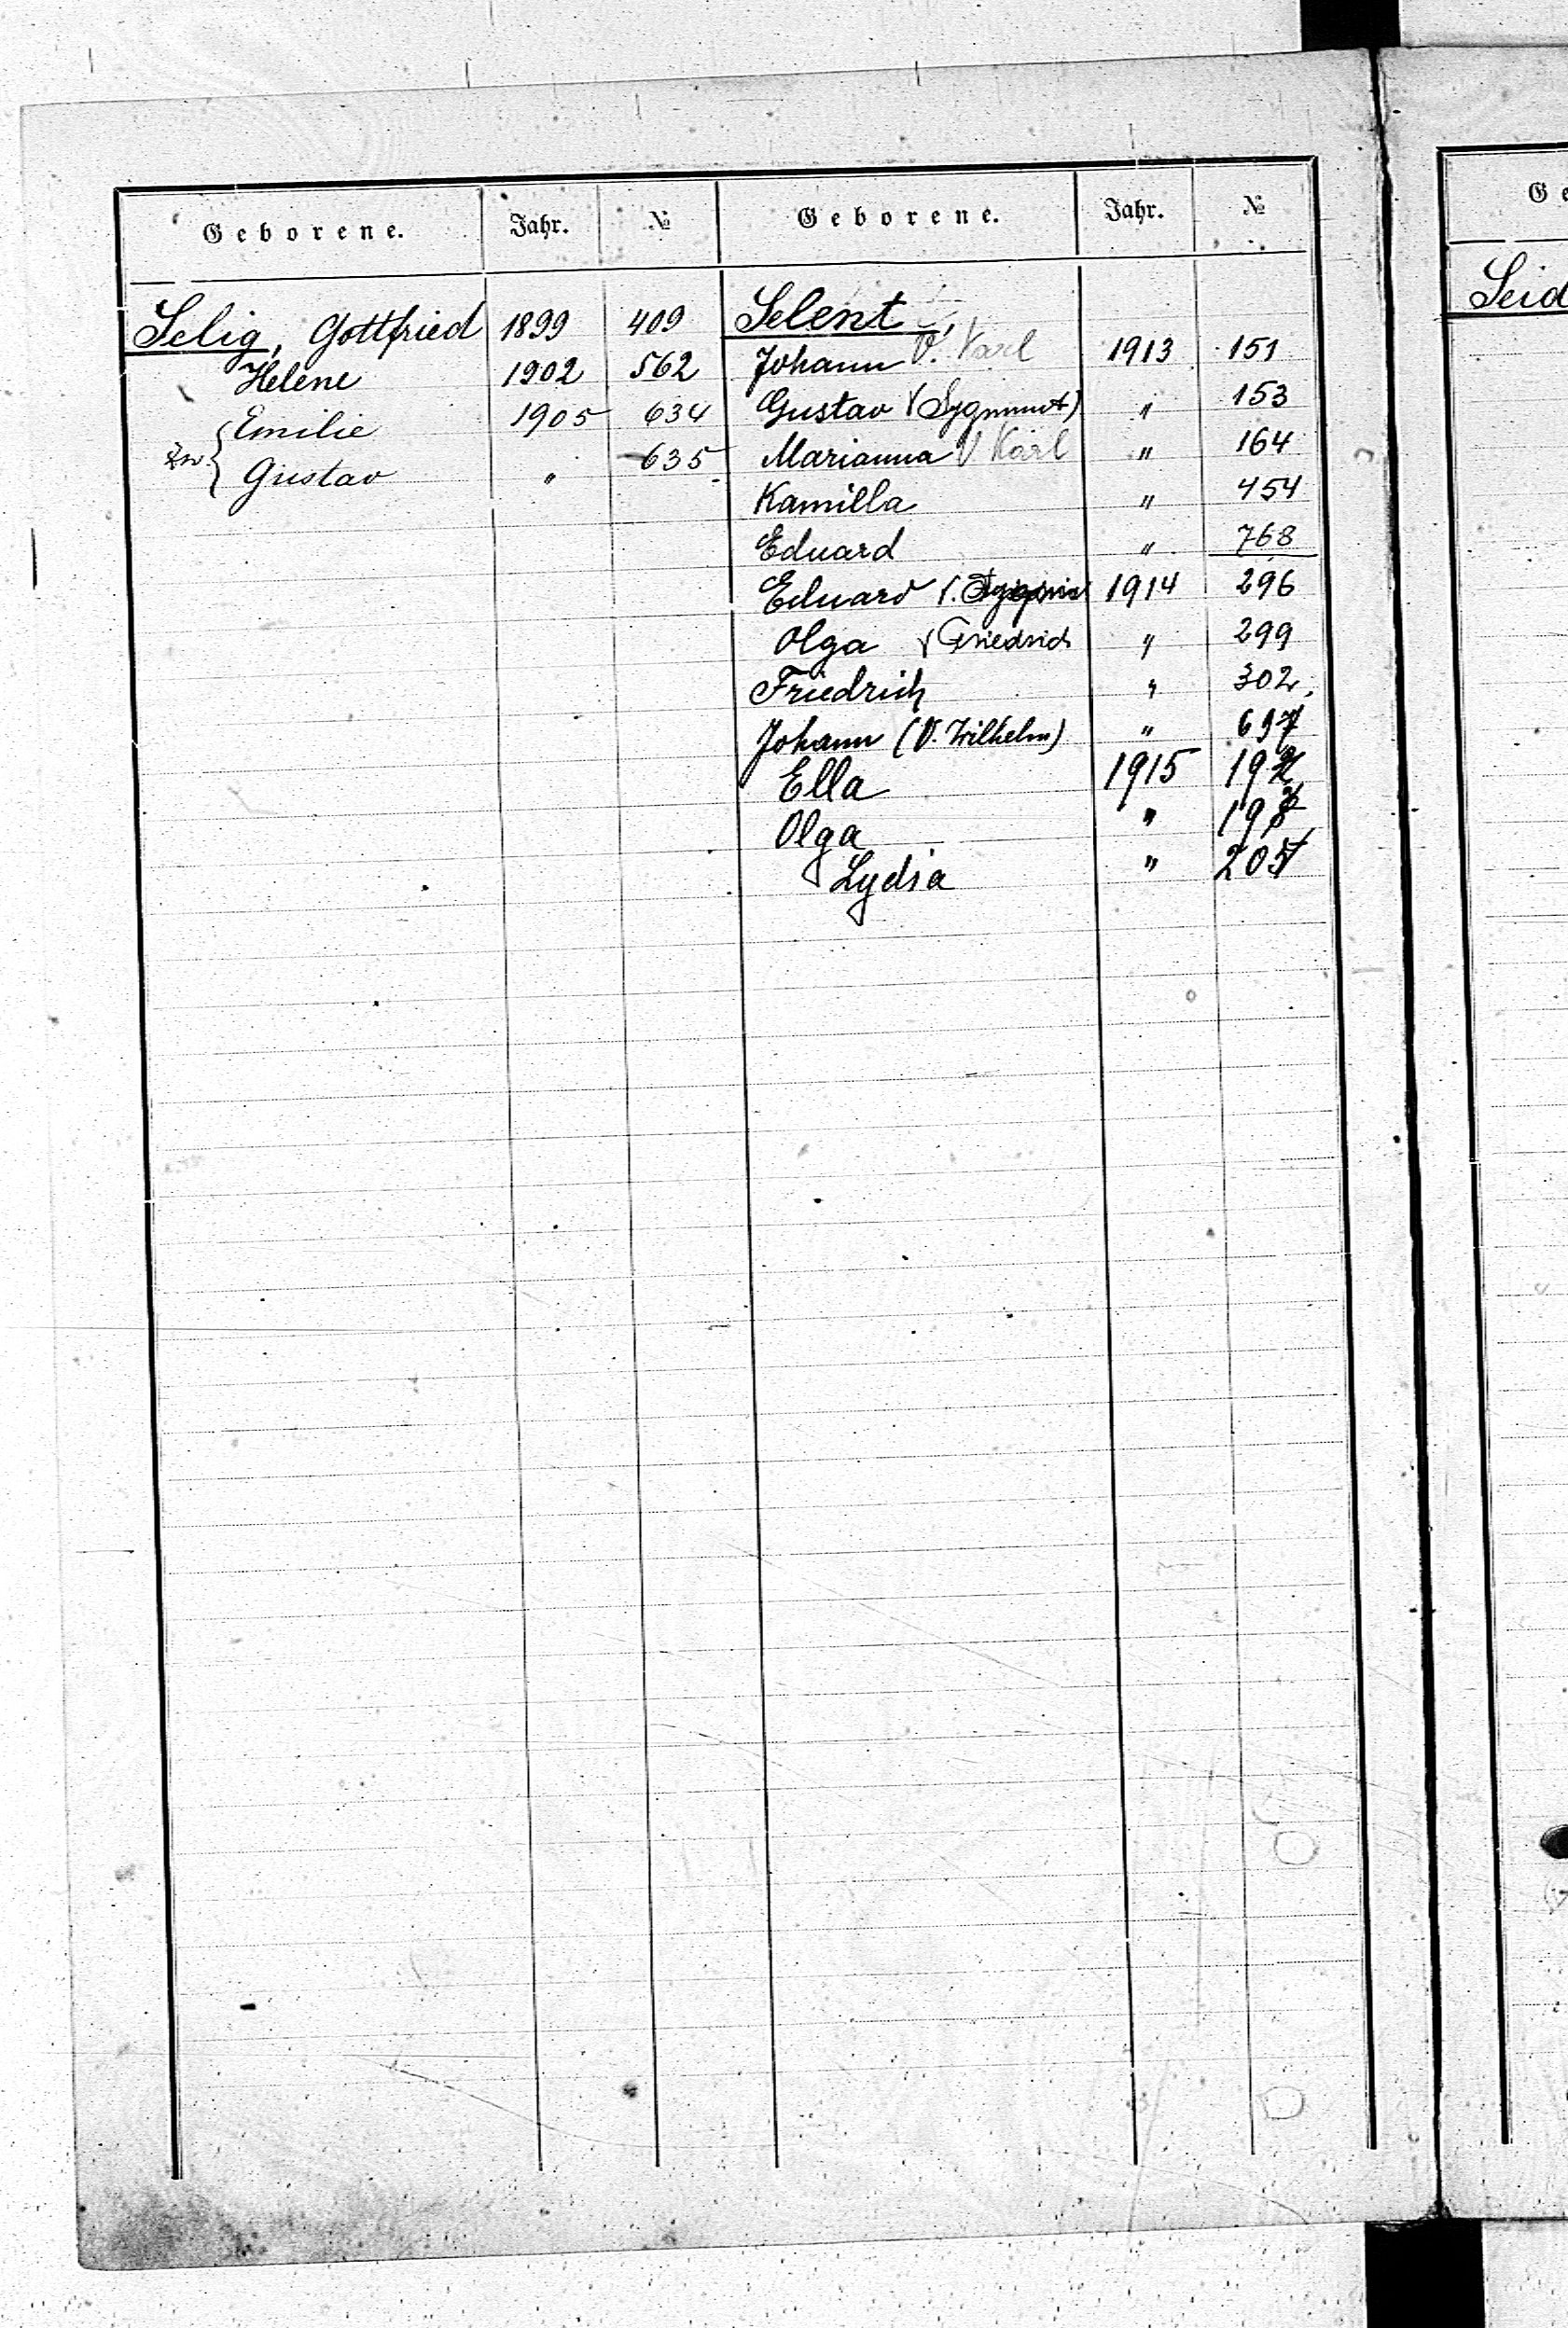 Geborene. Jahr. №
Selig, Gottfried 1899 409
Helene 1902 562
Emilie 1905 634
Zw. { Gustav " 635
Geborene. Jahr. №
Selent,
Johann V. Karl 1913 151
Gustav V (Sygmunt) " 153
Marianna V Karl " 164
Kamilla " 454
Eduard " 768
Eduard V. 1914 296
Olga V Friedrich " 299
Friedrich " 302.
Johann (V. Wilhelm) " 697
Ella 1915
Olga "
Lydia "
Ge
Seid